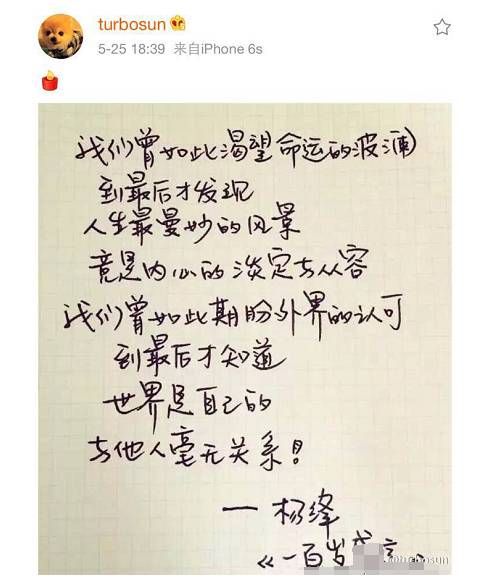 turbosun
5-25 18:39 来自iPhone 6s
我们曾如此渴望命运的波澜
到最后才发现
人生最曼妙的风景
竟是内心的淡定与从容
我们曾如此期盼外界的认可
到最后才知道
世界是自己的
与他人毫无关系！
— 杨绛
《一百岁
@turbosun